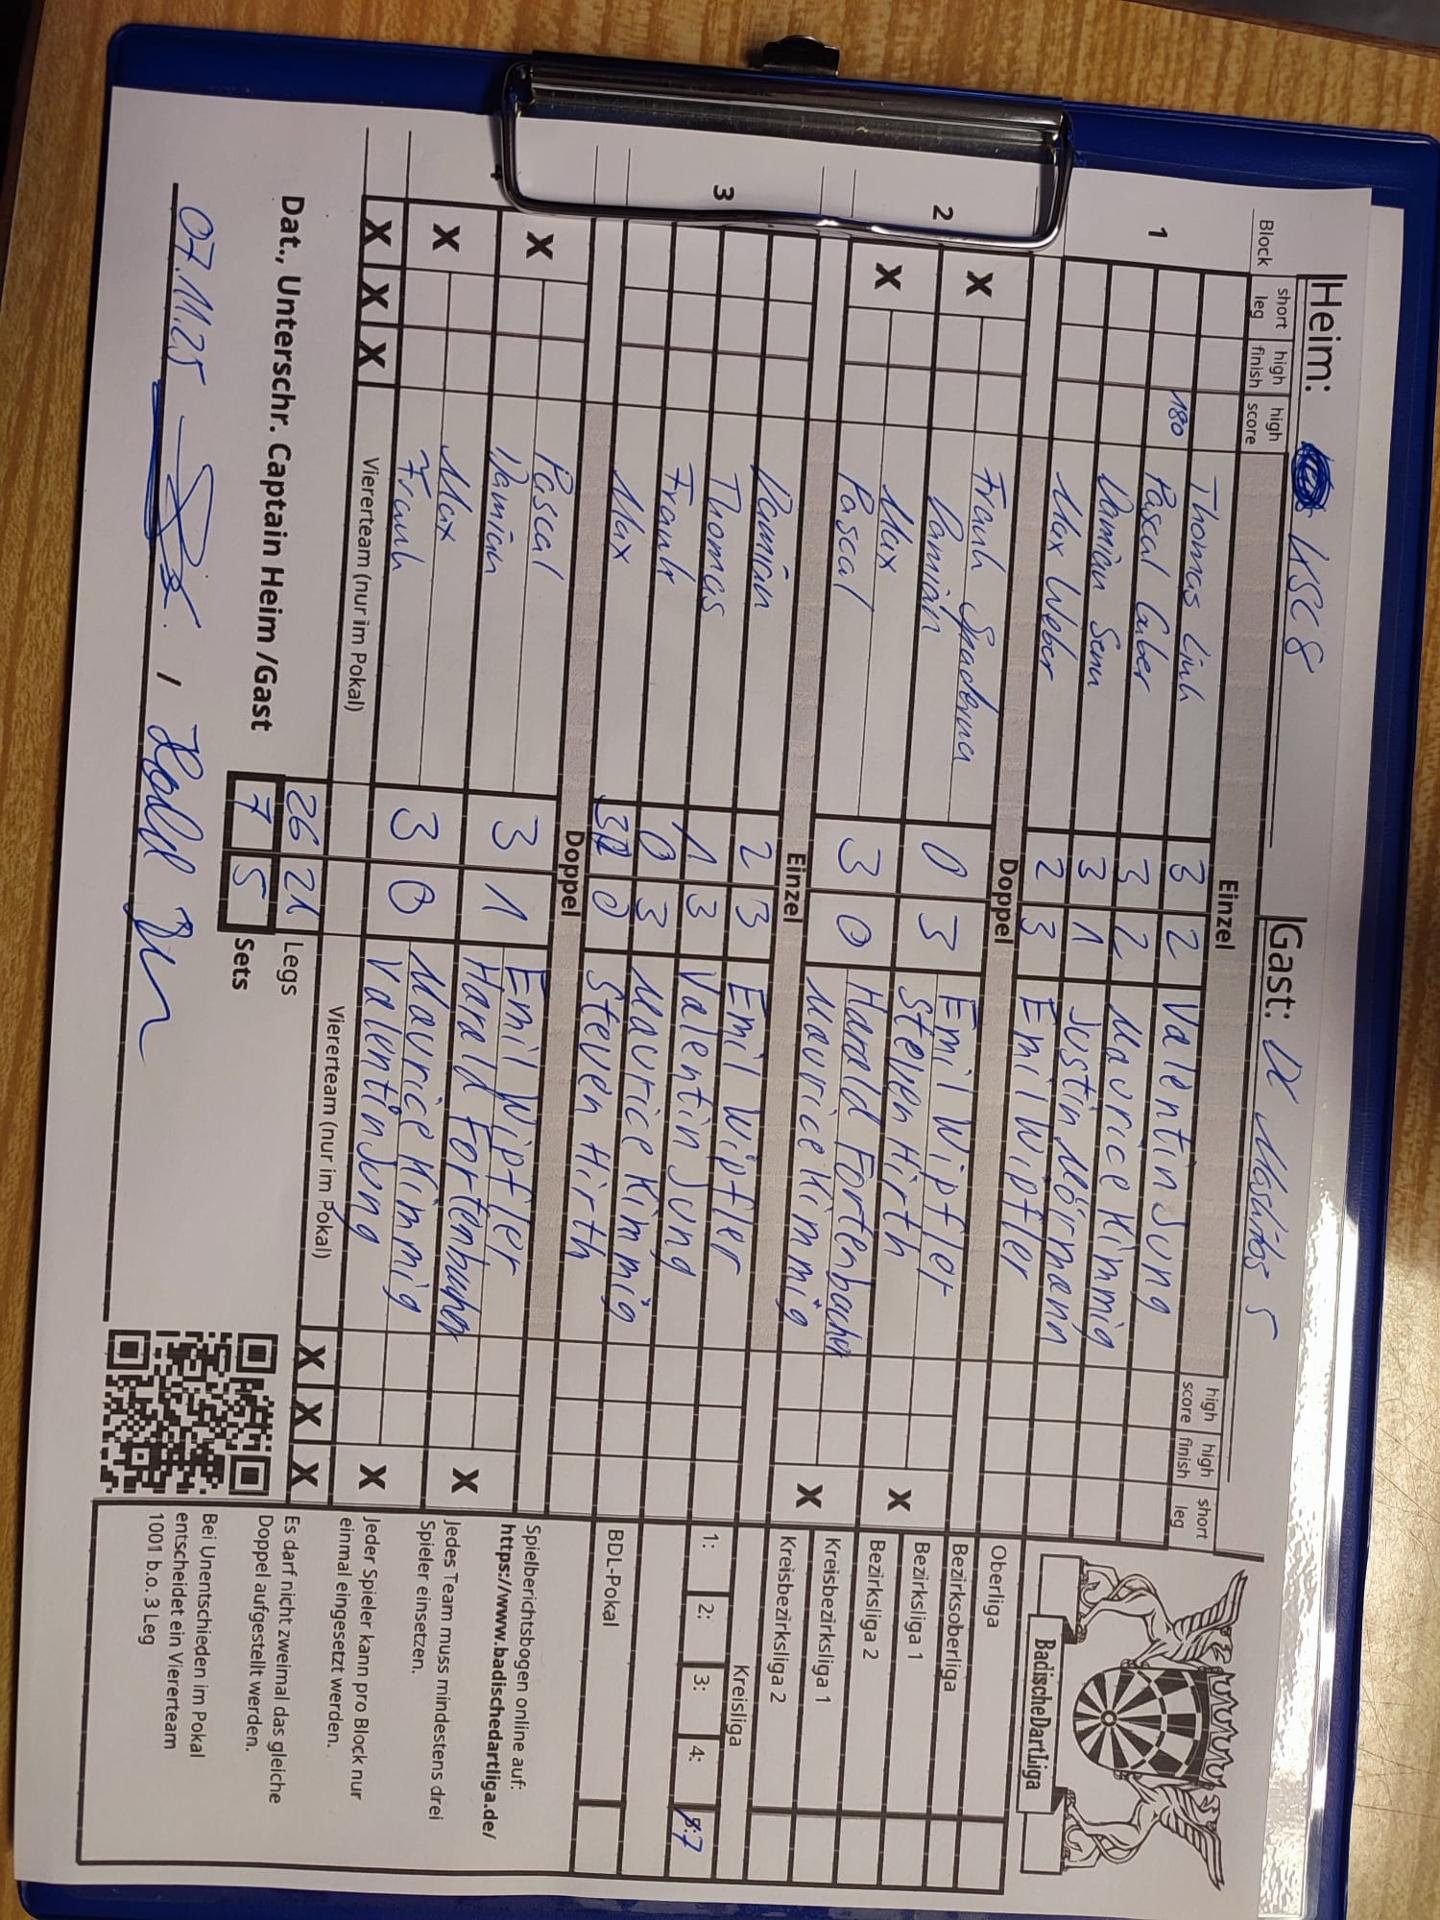 Heim: HSC 8 Gast: DC Maskitos 5
Block short leg high finish high score Einzel high score high finish short leg
1
Thomas Link 3 2 Valentin Jung
180 Pascal Huber 3 2 Maurice Kimmig
Damian Senn 3 1 Justin Mörmann
Max Weber 2 3 Emil Wipfler
Doppel
2
X Frank Spadzina 0 3 Emil Wipfler
Damian Steven Hirth X
X Max 3 0 Harald Fortenbacher
Pascal Maurice Kimmig X
Einzel
3
Damian 2 3 Emil Wipfler
Thomas 1 3 Valentin Jung
Frank 0 3 Maurice Kimmig
Max 3 0 Steven Hirth
Doppel
X Pascal 3 1 Emil Wipfler
Damian Harald Fortenbacher X
X Max 3 0 Maurice Kimmig
Frank Valentin Jung X
X X X Viererteam (nur im Pokal) Viererteam (nur im Pokal) X X X
26 21 Legs
7 5 Sets
Dat., Unterschr. Captain Heim /Gast
07.11.25 /
BadischeDartLiga
Oberliga
Bezirksoberliga
Bezirksliga 1
Bezirksliga 2
Kreisbezirksliga 1
Kreisbezirksliga 2
Kreisliga
1: 2: 3: 4: :7
BDL-Pokal
Spielberichtsbogen online auf:
https://www.badischedartliga.de/
Jedes Team muss mindestens drei
Spieler einsetzen.
Jeder Spieler kann pro Block nur
einmal eingesetzt werden.
Es darf nicht zweimal das gleiche
Doppel aufgestellt werden.
Bei Unentschieden im Pokal
entscheidet ein Viererteam
1001 b.o. 3 Leg